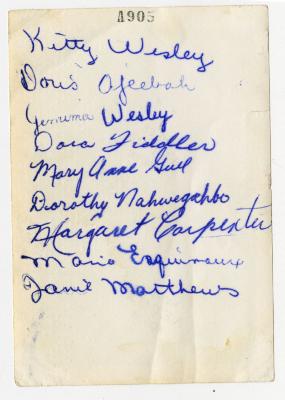 A905
Kitty Wesley
Doris Ajeebah
Jemima Wesley
Dora Fiddler
Mary Anne Gull
Dorothy Nahwegahbo
Margaret Carpenter
Maria Esquimaux
Janie Matthews